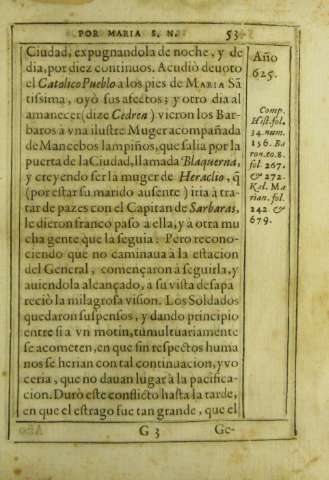 POR MARIA S. N. 53
Ciudad, expugnandola de noche, y de
dia, por diez continuos. Acudiò deuoto
el Catolico Pueblo a los pies de MARIA Sã
tissima, oyò sus afectos; y otro dia al
amanecer (dize Cedren) vieron los Bar-
baros à vna ilustre Muger acompañada
de Mancebos lampiños, que salia por la
puerta de la Ciudad, llamada Blaquerna;
y creyendo ser la muger de Heraclio, q̃
(por estar su marido ausente) iria à tra-
tar de pazes con el Capitan de Sarbaras,
le dieron franco passo a ella, y à otra mu
cha gente que la seguia: Pero recono-
ciendo que no caminaua a la estacion
del General, començaron à seguirla, y
auiendola alcançado, a su vista desapa
reciò la milagrosa vision. Los Soldados
quedaron suspensos, y dando principio
entre si a vn motin, tumultuariamente
se acometen, en que sin respectos huma
nos se herian con tal continuacion, y vo
ceria, que no dauan lugar à la pacifica-
cion. Durò este conflicto hasta la tarde,
en que el estrago fue tan grande, que el
G 3 Ge-
Año
625.
Comp.
Hist. fol.
34. num.
156. Ba
ron. to. 8.
fol. 267.
& 272.
Kal. Ma
rian. fol.
242. &
679.